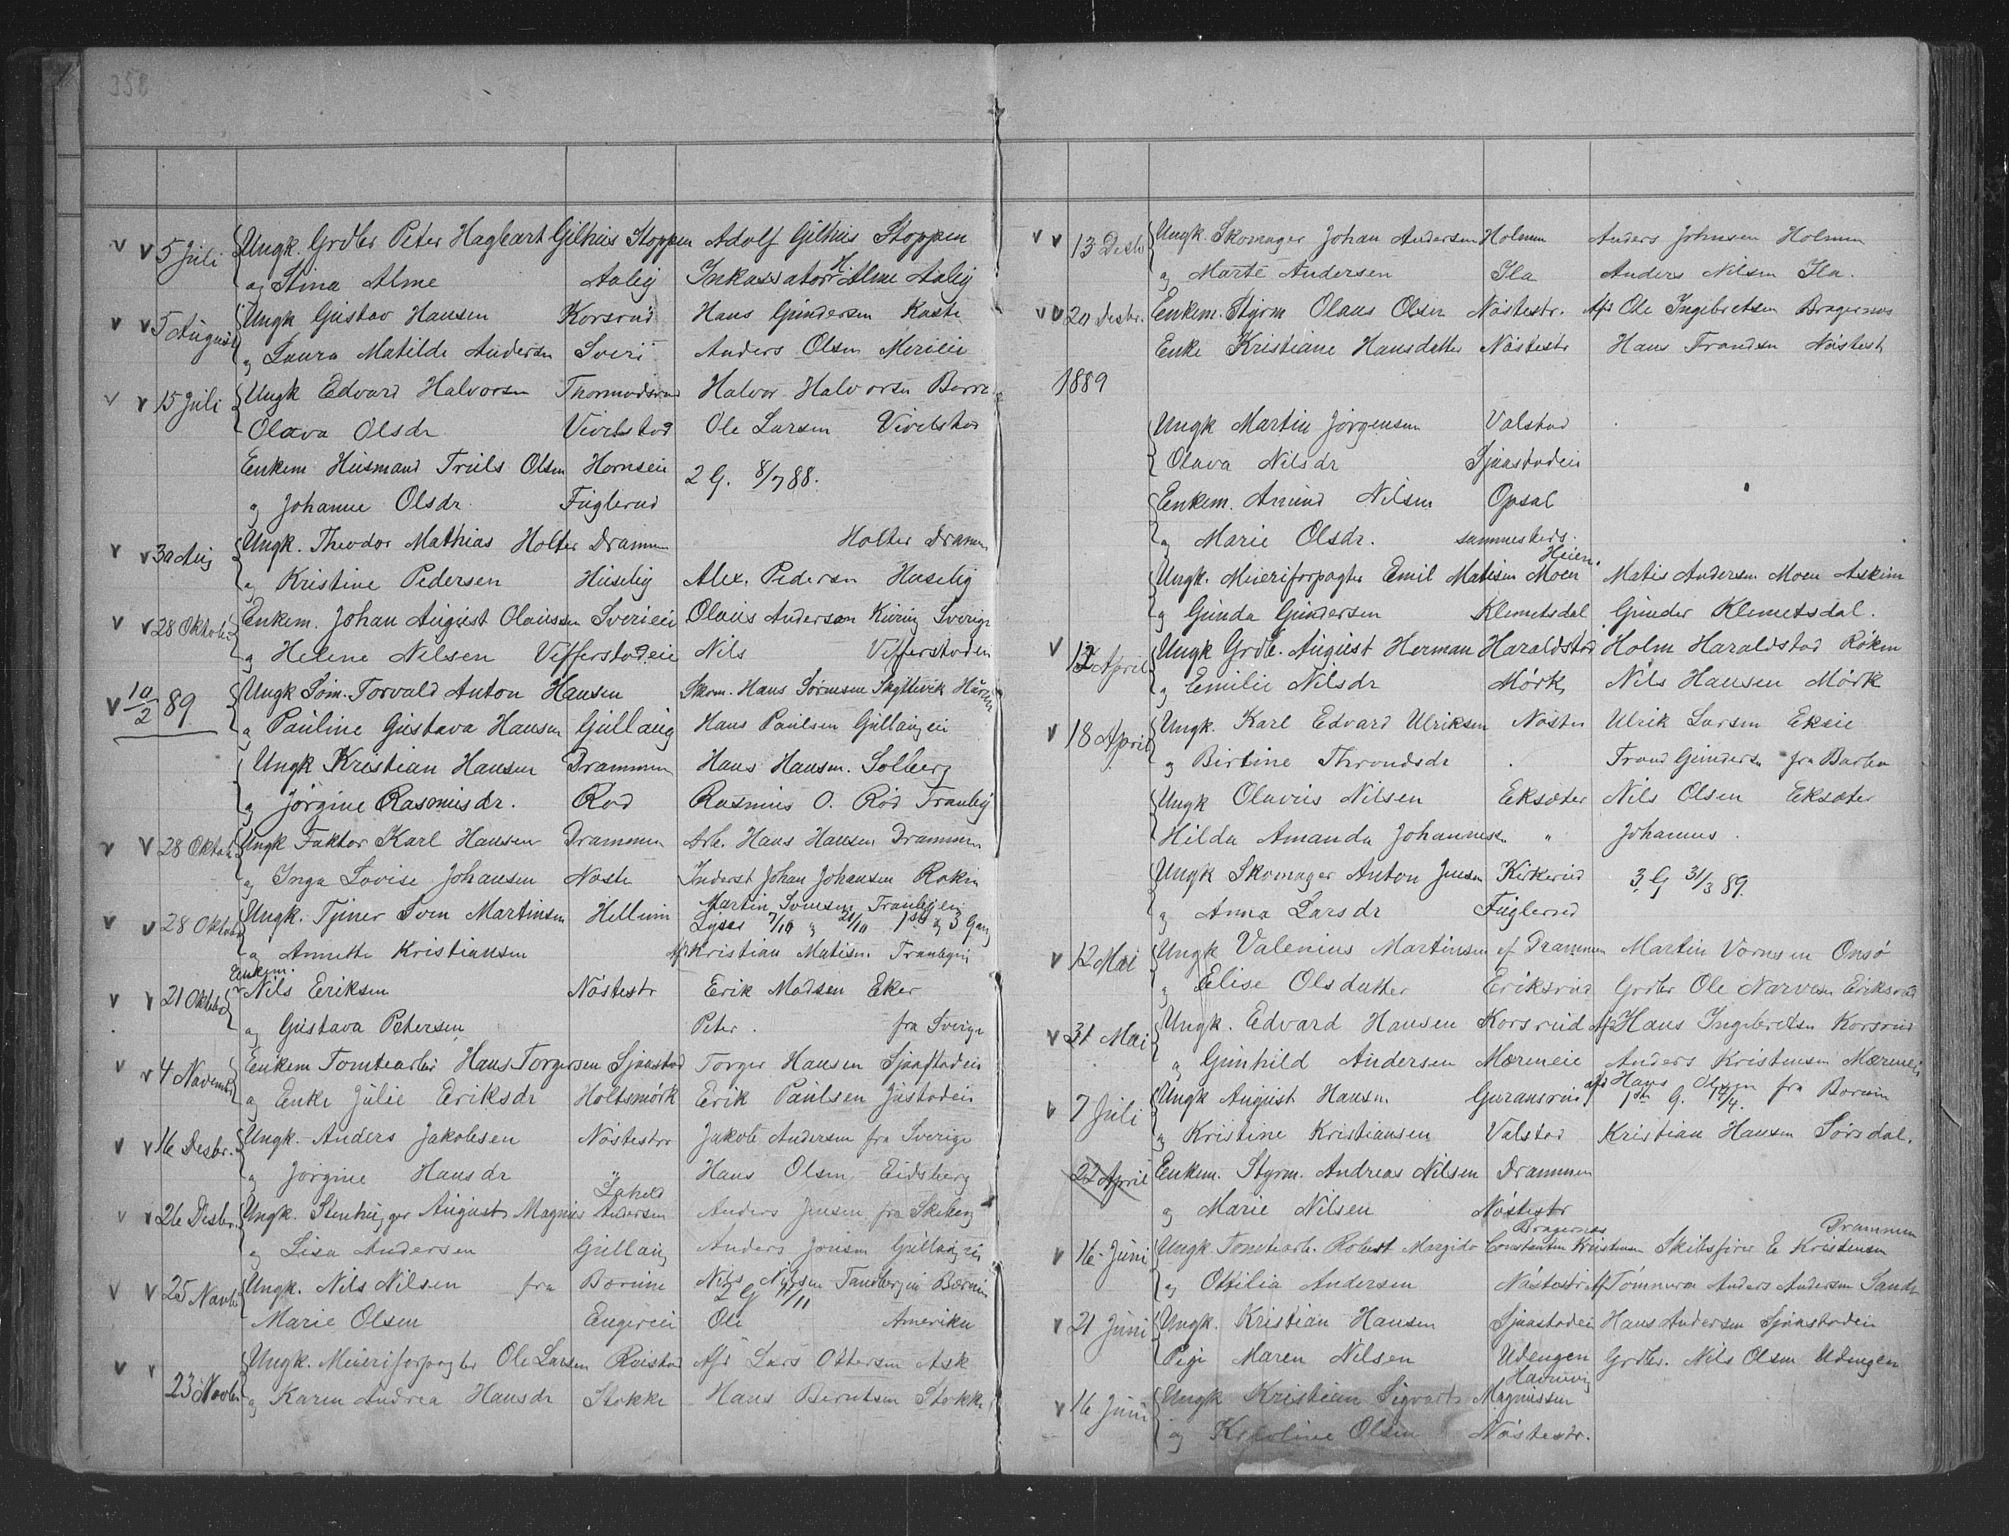 5 Juli Ungk. Grdbr Peter Hagbart Gilhus Stoppen Adolf Gilhus Stoppen
og Stina Alme Aaby Inkassator Alme Aaby
5 August Ungk Gustav Hansen Korsrud Hans Gundersen Kaste
og Laura Matilde Andersen Sveri Anders Olsen
15 Juli Ungk Edvard Halvorsen Thormodsrud Halvor Halvorsen
Olava Olsdr Vivelstad Ole Larsen Vivelstad
Enkem Husmand Truls Olsen Hornseie 2 G. 8/7 88.
og Johanne Olsdr. Fuglerud
30 Aug Ungk. Theodor Mathias Holter Drammen Holter Drammen
og Kristine Pedersen Huseby Alex. Pedersen Huseby
28 Oktober Enkem. Johan August Olaussen Olaus Anderson Sverige
og Helene Nilsen Vefferstadeie Nils Vefferstadeie
10/2 89 Ungk Søm. Torvald Anton Hansen Skom. Hans Sørensen
og Pauline Gustava Hansen Gullaug Hans Paulsen Gullaugeie
Ungk Kristian Hansen Drammen Hans Hansen. Solberg
og Jørgine Rasmusdr. Rød Rasmus O. Rød Tranby
28 Oktob Ungk Faktor Karl Hansen Drammen Arb. Hans Hansen Drammen
og Inga Lovise Johansen Nøste Inderst Johan Johansen Røken
Martin Svensen Tranbyeie
28 Oktob Ungk. Tjener Sven Martinsen Hellum Lyses 7/10 og 21/10 1ste og 3 Gang
og Annette Kristiansen Afd Kristian Matisen Tranbyeie
Enkem.
21 Oktober Nils Eriksen Nøstestr Erik Madsen Eker
og Gustava Petersen Peter fra Sverige
4 November Enkem Tomtearb Hans Torgersen Sjaastad Torger Hansen Sjaastadeie
og Enke Julie Eriksdr Holtsmørk Erik Paulsen Justadeie
16 Desbr. Ungk. Anders Jakobsen Nøstestr Jakob Andersen fra Sverige
og Jørgine Hansdr " Hans Olsen Eidsberg
26 Desbr. Ungk. Stenhugger August Magnus Andersen Anders Jensen fra Skiberg
og Lisa Andersen Gullaug Anders Jonsen Gullaugeie
25 Novbr Ungk. Nils Nilsen fra Bærum Nils Nilsen Tandbergeie Bærum
2 G 4/11
Marie Olsen Engereie Ole Amerika
23 Novbr Ungk. Meieriforpagter Ole Larsen Afd Lars Ottersen Ask
og Karen Andrea Hansdr Stokke Hans Berntsen Stokke
13 Desbr Ungk. Skomager Johan Andersen Holmen Anders Johnsen Holmen
og Marte Andersen Ila Anders Nilsen Ila.
20 Desbr. Enkem. Styrm Olaus Olsen Nøstestr. Afd Ole Ingebretsen Bragernes
Enke Kristiane Hansdatter Nøstestr Hans Frandsen Nøstestr
1889
Ungk Martin Jørgensen Valstad
Olava Nilsdr Sjaastadeie
Enkem. Amund Nilsen Opsal
og Marie Olsdr. sammesteds.
Heien.
Ungk. Meieriforpagter Emil Matisen Moen Matis Andersen Moen Askim
og Gunda Gundersen Klemetsdal Gunder Klemetsdal.
12 April Ungk Grdb. August Herman Haraldstad Holm Haraldstad Røken
og Emilie Nilsdr Mørk Nils Hansen Mørk
18 April Ungk. Karl Edvard Ulriksen Nøste Ulrik Larsen Ekeie
og Birtine Throndsdr Trond Gundersen fra Barbo
Ungk Olavus Nilsen Eksæter Nils Olsen Eksæter
Hilda Amanda Johannesen " Johannes.
Ungk Skomager Anton Jensen Kirkerud 3 G 31/3 89.
og Anna Larsdr Fuglerud
12 Mai Ungk Valenius Martinsen af Drammen Martin Onsø
og Elise Olsdatter Eriksrud Grdbr Ole Narvesen Eriksrud
31 Mai Ungk. Edvard Hansen Korsrud Afd Hans Ingebretsen Korsrud
og Gunhild Andersen Mærmeie Anders Kristensen Mærmeie
afd Hans Olsen fra Bærum
7 Juli Ungk August Hansen 1ste G. 14/4.
og Kristine Kristiansen Valstad Kristian Hansen Sørsdal.
22 April Enkem. Styrm. Andreas Nilsen Drammen
og Marie Nilsen Nøstestr
Bragernes Drammen
16 Juni Ungk. Tomtearb. Robert Margido Constantin Kristensen Skibsfører E Kristensen
og Ottilia Andersen Nøstestr Afd Tømmerm Anders Andersen Sande
21 Juni Ungk. Kristian Hansen Sjaastadeie Hans Andersen Sjaastadeie
Pige Maren Nilsen Udengen Grdbr. Nils Olsen Udengen
16 Juni Ungk Kristian Sigvart Magnussen
og Karoline Olsen Nøstestr.